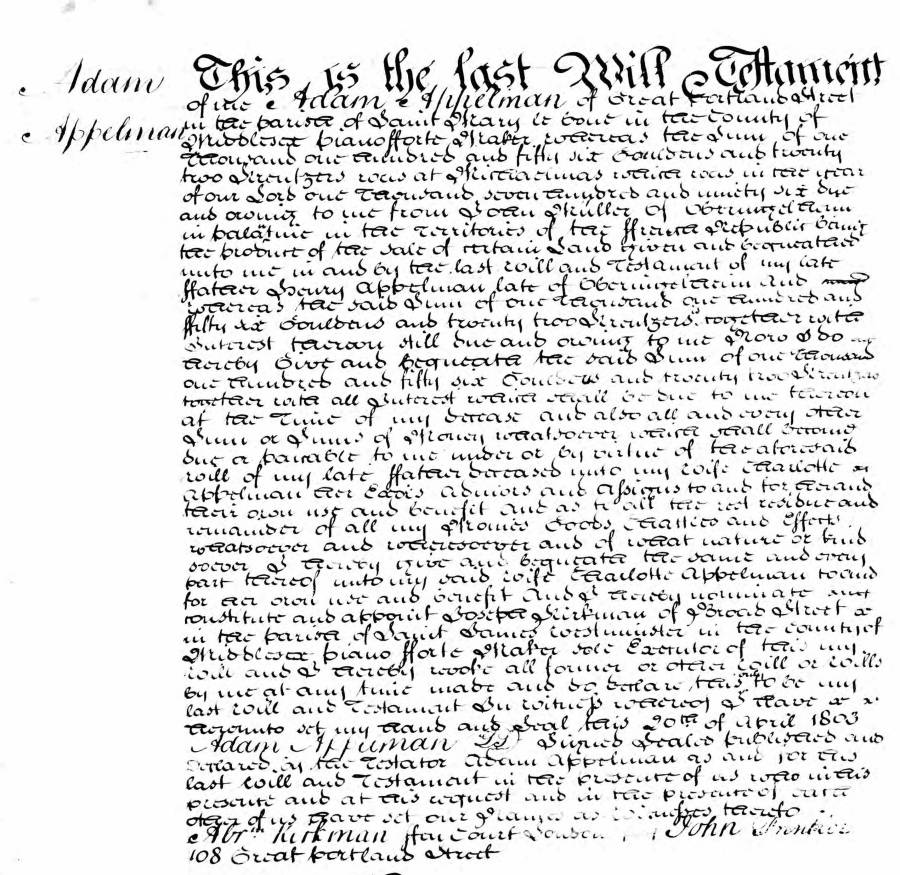 Adam
Appelman
This is the last Will & Testament
of me Adam Appelman of Great Portland Street
in the parish of Saint Mary le bone in the County of
Middlesex pianofforte Maker whereas the Sum of one
thousand one hundred and fifty six Gouldens and twenty
two Kreutzers was at Michaelmas which was in the year
of our Lord one Thousand seven hundred and ninety six due
and owing to me from John Muller of Oberingelheim
in palatine in the Territories of the ffrench Republic being
the produce of the sale of certain Land given and bequeathed
unto me in and by the last will and Testament of my late
ffather Henry Appelman late of Oberingelheim And
whereas the said Sum of one thousand one hundred and
fifty six Gouldens and twenty two Kreutzers together with
Interest thereon still due and owing to me Now I do
hereby Give and bequeath the said Sum of one thousand
one hundred and fifty six Gouldens and twenty two Kreutzers
together with all Interest which shall be due to me thereon
at the Time of my decease and also all and every other
Sum or Sums of Money whatsoever which shall become
due or payable to me under or by virtue of the aforesaid
will of my late ffather deceased unto my wife Charlotte
Appelman her Exors Admors and Assigns to and for her and
their own use and benefit And as to all the rest residue and
remainder of all my Monies Goods Chattles and Effects
whatsoever and wheresoever and of what nature or kind
soever I hereby give and bequeath the same and every
part thereof unto my said wife Charlotte Appelman to and
for her own use and benefit And I hereby nominate
constitute and appoint Joseph Kirkman of Broad Street
in the parish of Saint James Westminster in the County of
Middlesex piano fforte Maker sole Executor of this my
will and I hereby revoke all former or other will or wills
by me at any time made and do declare this only to be my
last will and Testament In witness whereof I have
hereunto set my hand and Seal this 20th of April 1803
Adam Appelman LS Signed Sealed published and
declared by the Testator Adam Appelman as and for his
last will and Testament in the presence of us who in his
presence and at his request and in the presence of each
other of us have set our Names as Witnesses thereto
Abrm Kirkman ffen Court London John
108 Great portland Street